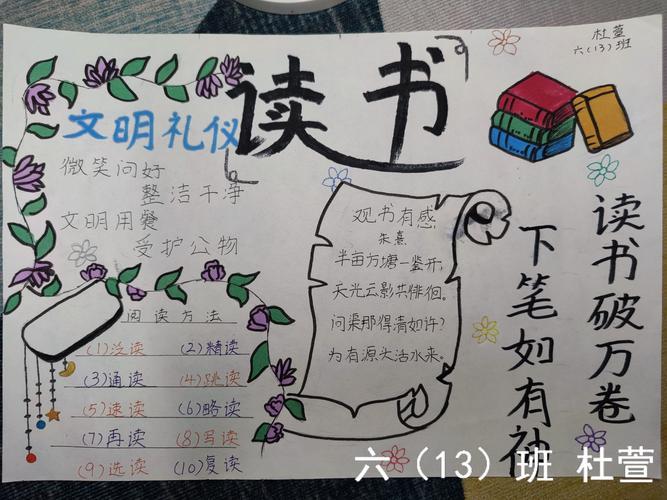 读书
杜萱
六(13)班
文明礼仪
微笑问好
整洁干净
文明用餐
受护公物
阅读方法
(1)泛读 (2)精读
(3)诵读 (4)跳读
(5)速读 (6)略读
(7)再读 (8)写读
(9)选读 (10)复读
观书有感
朱熹
半亩方塘一鉴开,
天光云影共徘徊。
问渠那得清如许?
为有源头活水来。
读书破万卷
下笔如有神
六（13）班 杜萱